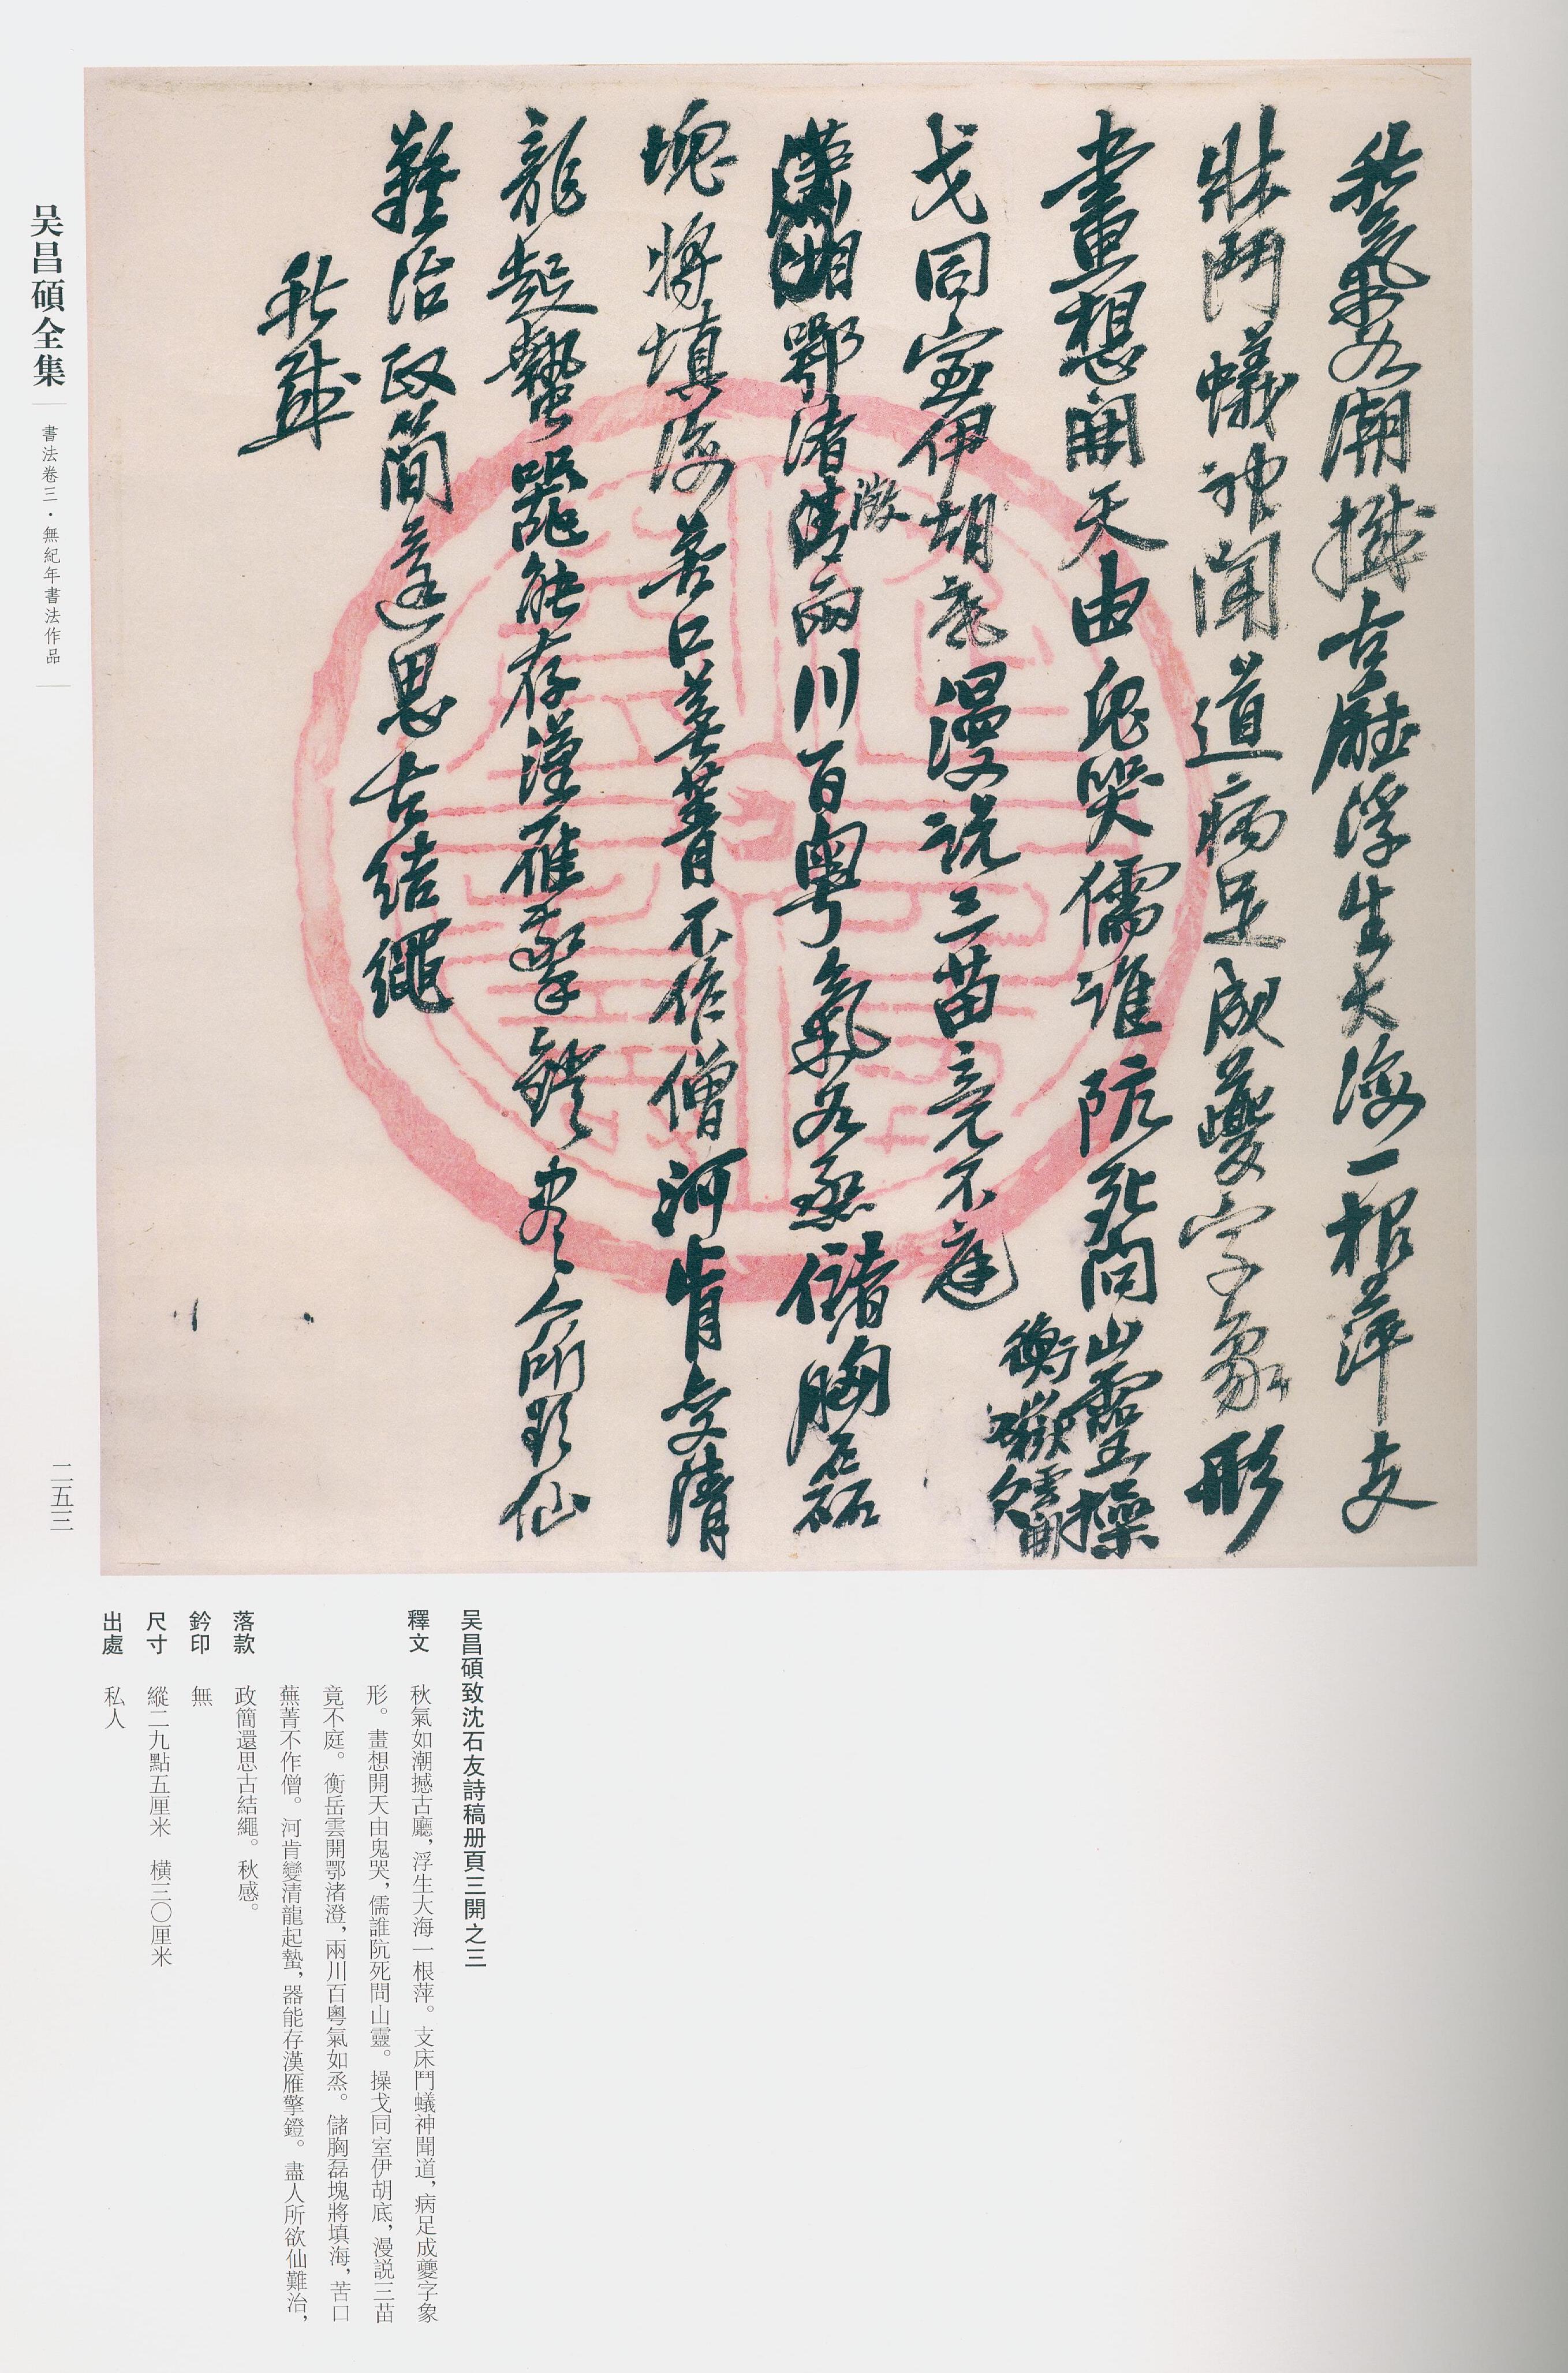 秋氣如潮撼古廳浮生大海一根萍支
牀鬥蟻神聞道病足成夔字象形
畫想開天由鬼哭儒誰阬死問山靈操
戈同室伊胡底漫說三苗竟不庭
衡嶽雲開
鄂渚澂兩川百粵氣如烝儲胸磊
塊將填海苦口蕪菁不作僧河肯變清
龍起蟄器能存漢雁擎鐙盡人所欲仙
難治政簡還思古結繩
秋感
吴昌碩全集
書法卷三·無紀年書法作品
二五三
吴昌碩致沈石友詩稿册頁三開之三
釋文 秋氣如潮撼古廳，浮生大海一根萍。支床鬥蟻神聞道，病足成夔字象
形。畫想開天由鬼哭，儒誰阬死問山靈。操戈同室伊胡底，漫説三苗
竟不庭。衡岳雲開鄂渚澄，兩川百粵氣如烝。儲胸磊塊將填海，苦口
蕪菁不作僧。河肯變清龍起蟄，器能存漢雁擎鐙。盡人所欲仙難治，
政簡還思古結繩。秋感。
落款
鈐印 無
尺寸 縱二九點五厘米 橫三〇厘米
出處 私人